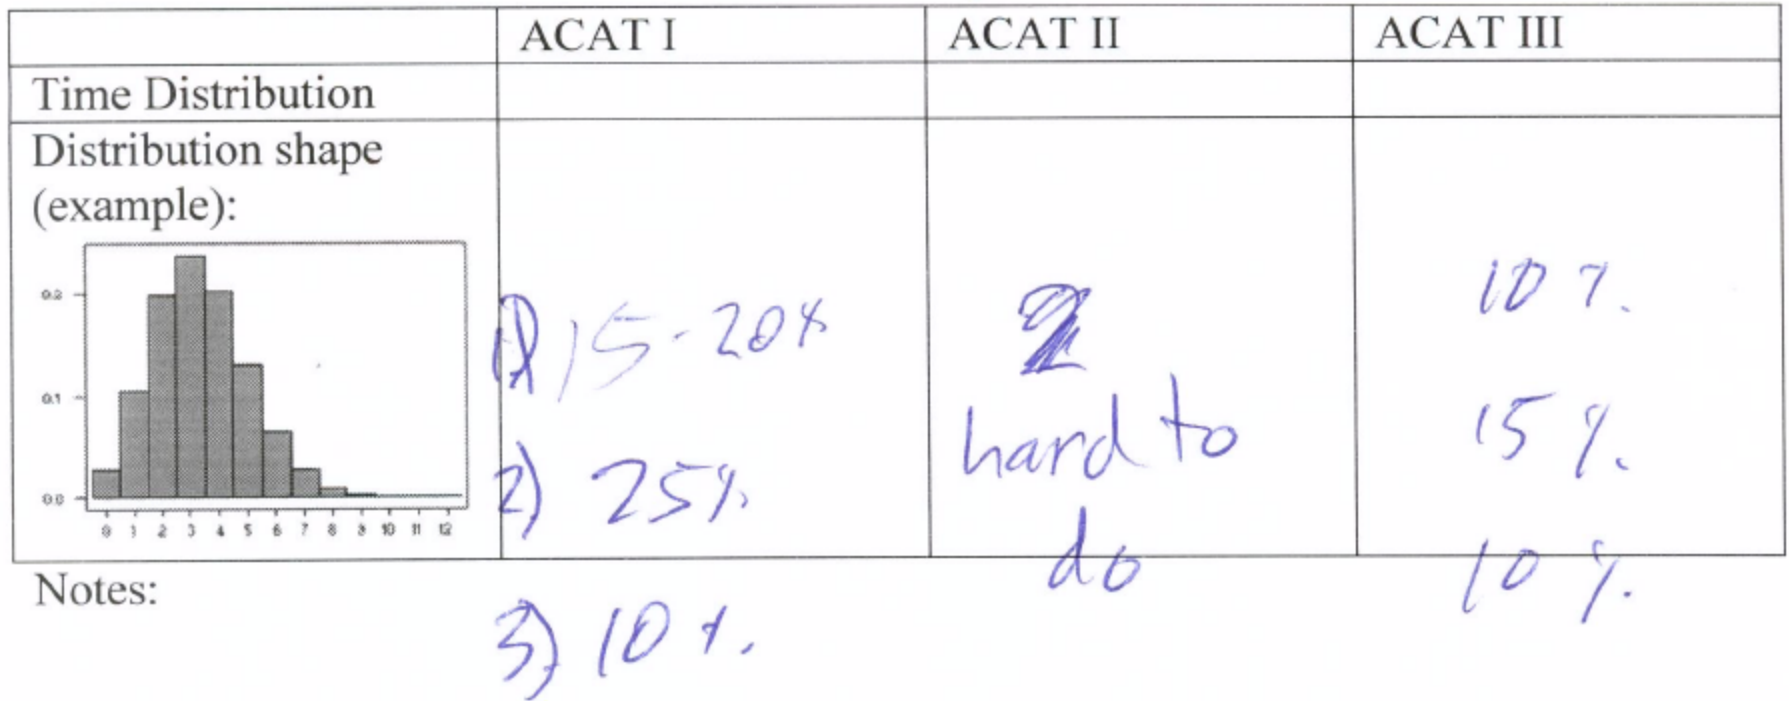 ACAT I ACAT II ACAT III
Time Distribution
Distribution shape
(example):
0.2
0.1
0.0
0 1 2 3 4 5 6 7 8 9 10 11 12
1) 15-20%
2) 25%
3) 10%
hard to
do
10%.
15%.
10%.
Notes: